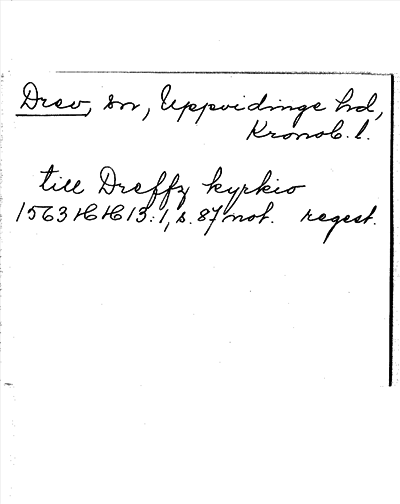 Drev, sn, Uppvidinge hd,
Kronob. l.
till Dreffz kyrkio
1563 HH 13:1, s. 87 not. regest.